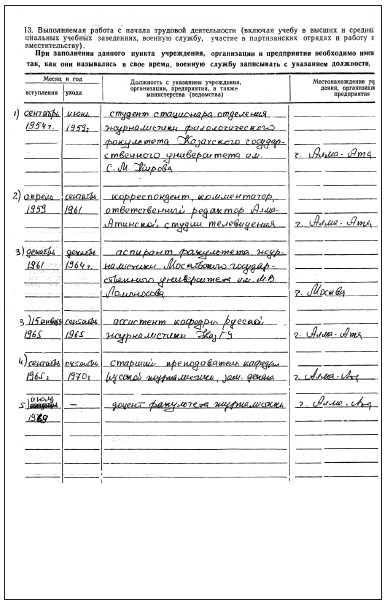 13. Выполняемая работа с начала трудовой деятельности (включая учебу в высших и средни
циальных учебных заведениях, военную службу, участие в партизанских отрядах и работу
вместительству).
При заполнении данного пункта учреждения, организации и предприятия необходимо имен
так, как они назывались в свое время, военную службу записывать с указанием должности.
Месяц и год
вступления
ухода
Должность с указанием учреждения,
организации, предприятия, а также
министерства (ведомства)
Местонахождение уч
дения, организации
предприятия
1) сентябрь июнь студент стационара отделения
1954г. 1959г. журналистики филологического
факультета Казахского государ-
ственного университета им. г. Алма-Ата
С. М. Кирова
2) апрель сентябрь корреспондент, комментатор,
1959 1961 ответственный редактор Алма-
Атинской студии телевидения г. Алма-Ата
3) декабрь декабрь аспирант факультета жур-
1961 1964г. налистики Московского государ-
ственного университета им. М.В.
Ломоносова г. Москва
3) 15 января сентябрь ассистент кафедры русской
1965 1965 журналистики КазГУ г. Алма-Ата
4) сентябрь октябрь старший преподаватель кафедры
1965г 1970г русской журналистики, зам. декана г. Алма-Ата
5. июль — доцент факультета журналистики г. Алма-Ата